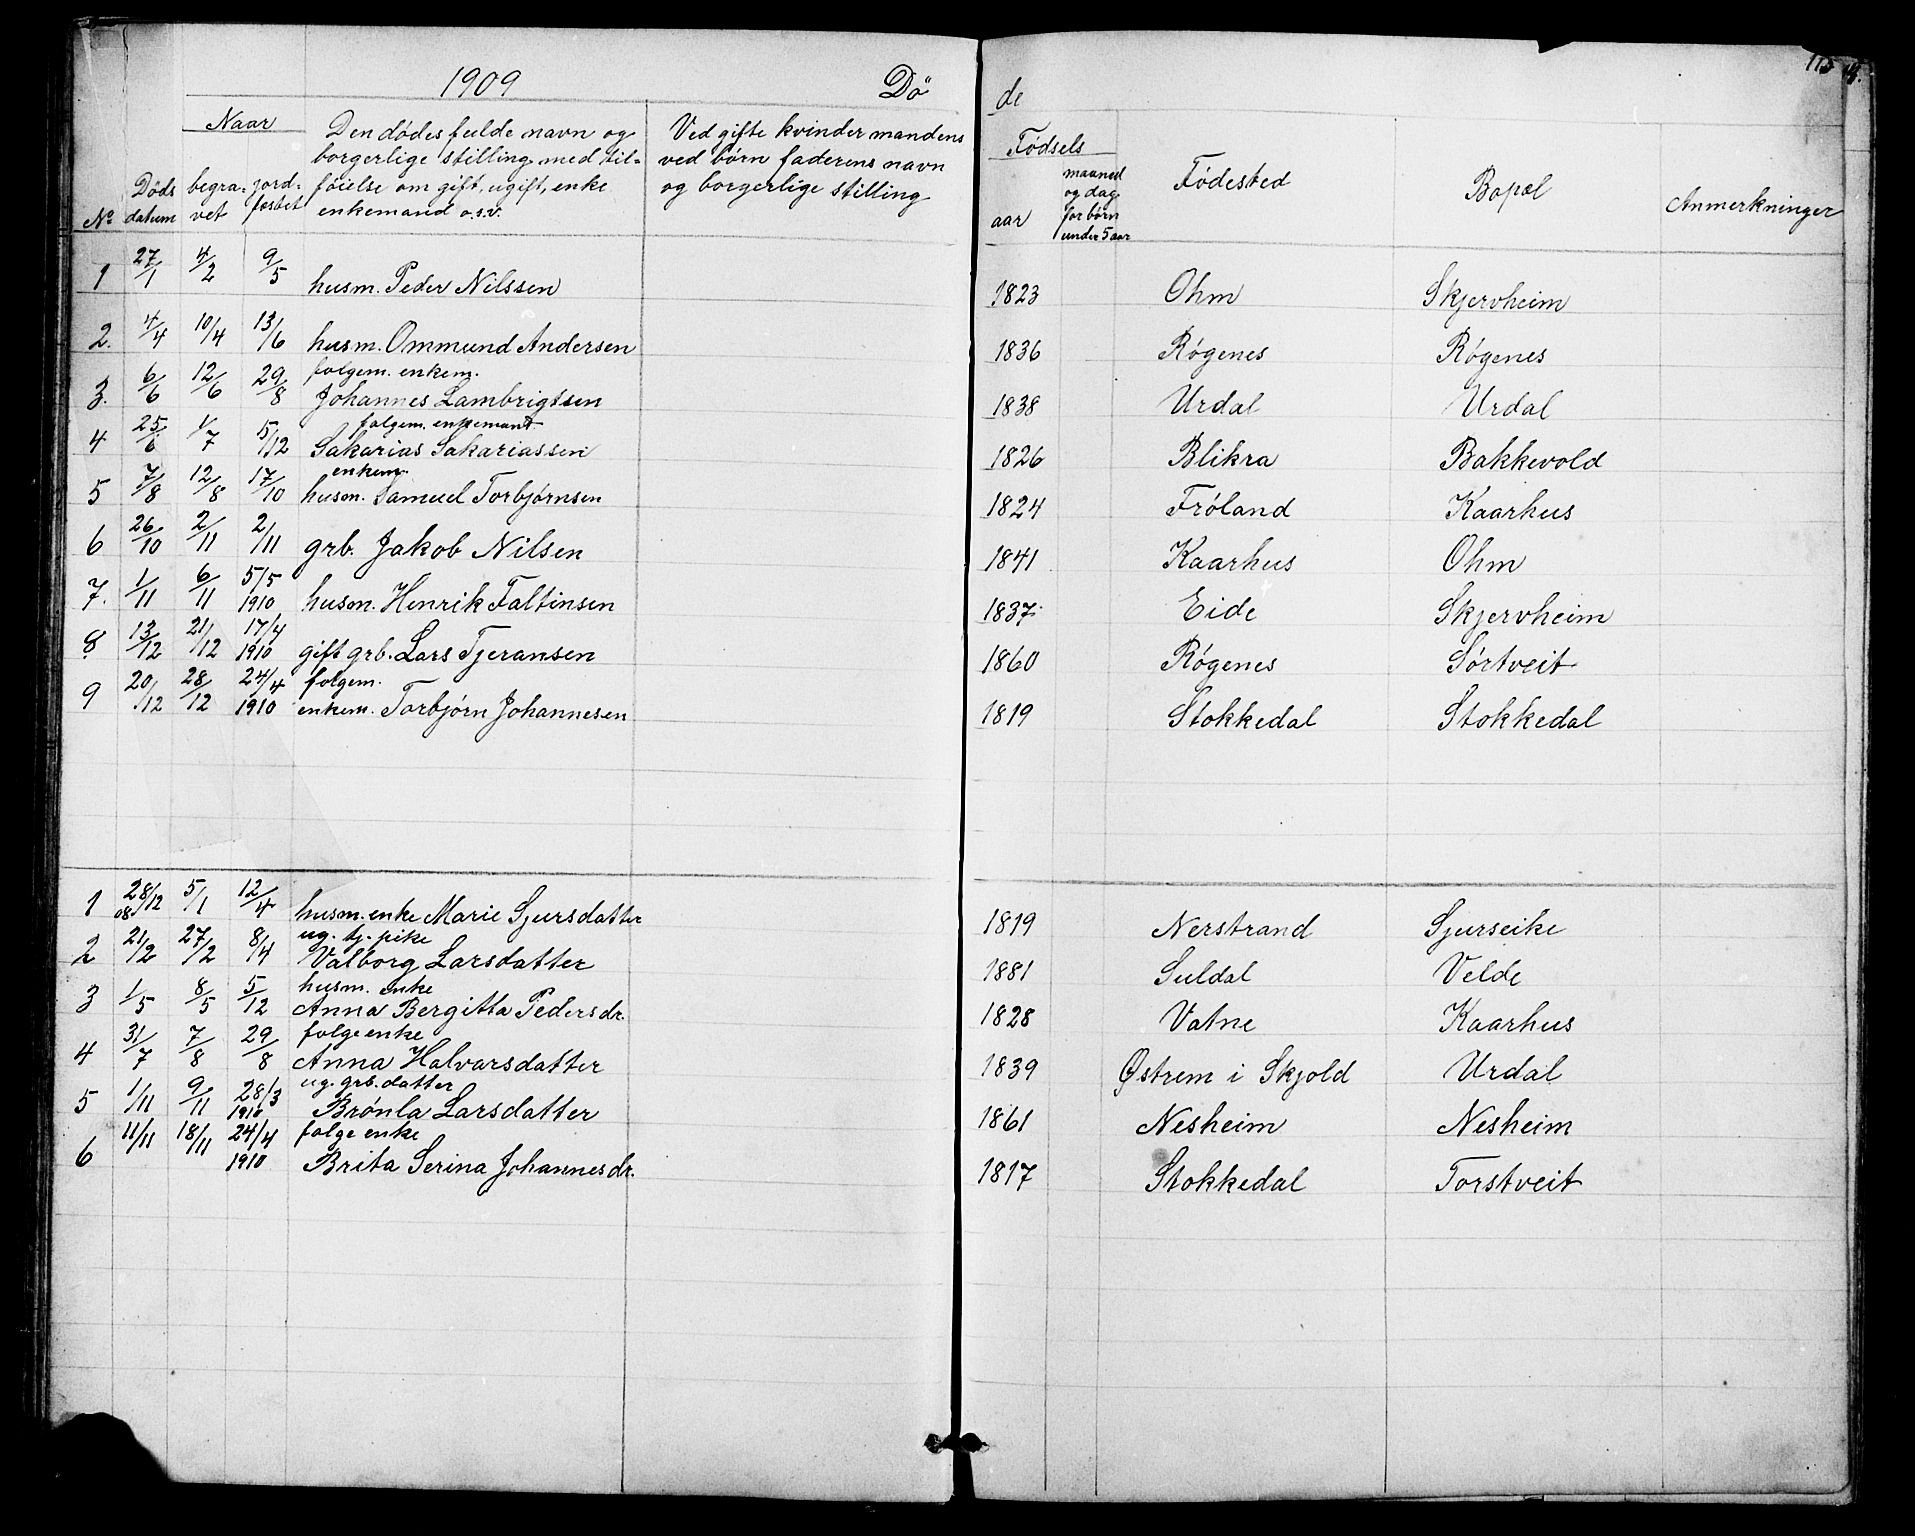 1909 Dö de 115
Naar Den dødes fulde navn og Ved gifte kvinder mandens Fødsels
borgerlige stilling med til= ved børn faderens navn maaned
Døds begra= jord= føielse om gift, ugift, enke og borgerlige stilling og dag Fødested Bopæl
No datum vet fæstet enkemand o.s.v. aar for børn Anmerkninger
under 5 aar
1 27/1 4/2 9/5 husm. Peder Nilssen 1823 Ohm Skjervheim
2. 4/4 10/4 13/6 husm. Ommund Andersen 1836 Røgenes Røgenes
folgem. enkem.
3. 6/6 12/6 29/8 Johannes Lambrigtsen 1838 Urdal Urdal
folgem. enkemand
4 25/6 1/7 5/12 Sakarias Sakariassen 1826 Blikra Bakkevold
enkem.
5 7/8 12/8 17/10 husm. Samuel Torbjørnsen 1824 Frøland Kaarhus
6 26/10 2/11 2/11 grb. Jakob Nilsen 1841 Kaarhus Ohm
7. 1/11 6/11 5/5 1910 husm. Henrik Faltinsen 1837 Eide Skjervheim
8 13/12 21/12 17/4 1910 gift grb. Lars Tjeransen 1860 Røgenes Sørtveit
folgem.
9 20/12 28/12 24/4 1910 enkem. Torbjørn Johannesen 1819 Stokkedal Stokkedal
1 28/12 08 5/1 12/4 husm. enke Marie Sjursdatter 1819 Nerstrand Sjurseike
ug. tj. pike
2 21/2 27/2 8/4 Valborg Larsdatter 1881 Suldal Velde
husm. enke
3 1/5 8/5 5/12 Anna Bergitta Pedersdr. 1828 Vatne Kaarhus
folge enke
4 31/7 7/8 29/8 Anna Halvarsdatter 1839 Østrem i Skjold Urdal
ug. grb. datter
5 1/11 9/11 28/3 1910 Brønla Larsdatter 1861 Nesheim Nesheim
folge enke
6 11/11 18/11 24/4 1910 Brita Serina Johannesdr. 1817 Stokkedal Torstveit